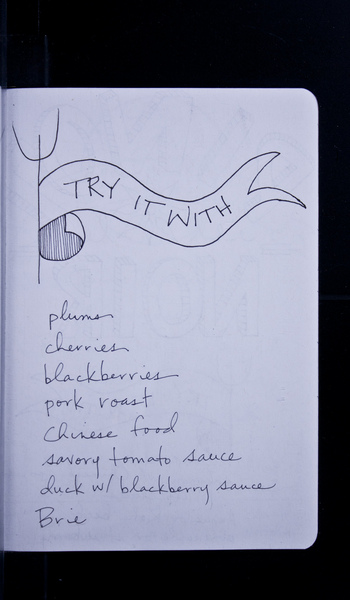 TRY IT WITH
plums
cherries
blackberries
pork roast
Chinese food
savory tomato sauce
duck w/ blackberry sauce
Brie